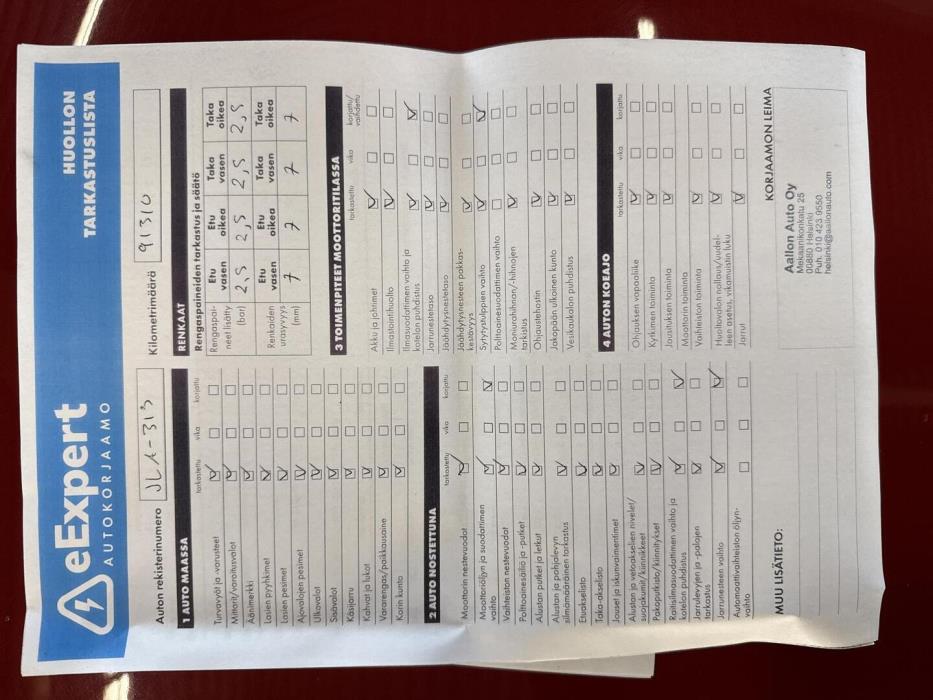 eExpert
AUTOKORJAAMO
HUOLLON
TARKASTUSLISTA
Auton rekisterinumero JLA-313
Kilometrimäärä 91310
1 AUTO MAASSA
tarkastettu vika korjattu
Turvavyöt ja -varusteet
Mittarit/varoitusvalot
Äänimerkki
Lasien pyyhkimet
Lasien pesimet
Ajovalojen pesimet
Ulkovalot
Sisävalot
Käsijarru
Kahvat ja lukot
Vararengas/paikkausaine
Korin kunto
2 AUTO NOSTETTUNA
tarkastettu vika korjattu
Moottorin nestevuodot
Moottoriöljyn ja suodattimen
vaihto
Vaihteiston nestevuodot
Polttoainesäiliö ja -putket
Alustan putket ja letkut
Alustan ja pohjalevyn
silmämääräinen tarkastus
Etuakselisto
Taka-akselisto
Jouset ja iskunvaimentimet
Alustan ja vetoakselien nivelet/
suojakumit/kiinnikkeet
Pakoputkisto/kiinnitykset
Raitisilmasuodattimen vaihto ja
kotelon puhdistus
Jarrulevyjen ja -palojen
tarkastus
Jarrunesteen vaihto
Automaattivaihteiston öljyn-
vaihto
MUU LISÄTIETO:
RENKAAT
Rengaspaineiden tarkastus ja säätö
Rengaspai-
neet lisätty
(bar)
Etu
vasen
Etu
oikea
Taka
vasen
Taka
oikea
2,5 2,5 2,5 2,5
Renkaiden
urasyvyys
(mm)
Etu
vasen
Etu
oikea
Taka
vasen
Taka
oikea
7 7 7 7
3 TOIMENPITEET MOOTTORITILASSA
tarkastettu vika korjattu/
vaihdettu
Akku ja johtimet
Ilmastointihuolto
Ilmasuodattimen vaihto ja
kotelon puhdistus
Jarrunestetaso
Jäähdytysnestetaso
Jäähdytysnesteen pakkas-
kestävyys
Sytytystulppien vaihto
Polttoainesuodattimen vaihto
Moniurahihnan/-hihnojen
tarkistus
Ohjaustehostin
Jakopään ulkoinen kunto
Vesikaukalon puhdistus
4 AUTON KOEAJO
tarkastettu vika korjattu
Ohjauksen vapaaliike
Kytkimen toiminta
Jousituksen toiminta
Moottorin toiminta
Vaihteiston toiminta
Huoltovalon nollaus/uudel-
leen asetus, vikamuistin luku
Jarrut
KORJAAMON LEIMA
Aallon Auto Oy
Mekaanikonkatu 25
00880 Helsinki
Puh. 010 423 9550
helsinki@aallonauto.com